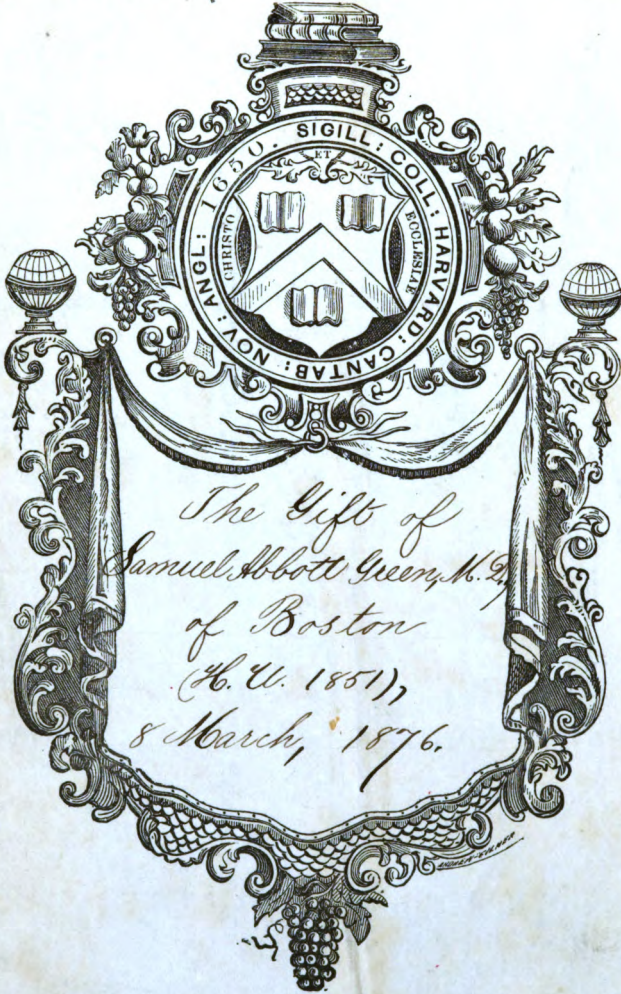 SIGILL: COLL: HARVARD: CANTAB: NOV: ANGL: 1650.
CHRISTO
ET
ECCLESIAE
The Gift of
Samuel Abbott Green, M.D.,
of Boston
(H. U. 1851),
8 March, 1876.